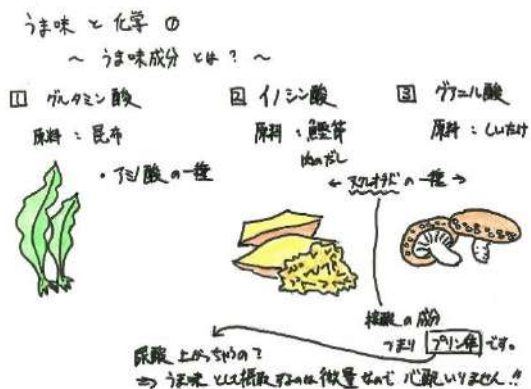 うま味 と 化学 ①
〜 うま味成分 とは？ 〜
1 グルタミン酸
原料：昆布
・アミノ酸の一種
2 イノシン酸
原料：鰹節
肉のだし
3 グアニル酸
原料：しいたけ
← ヌクレオチドの一種 →
核酸の成分
つまり プリン体 です。
尿酸 上がっちゃうの？
⇒ うま味 として摂取するのは微量なので 心配いりません!!